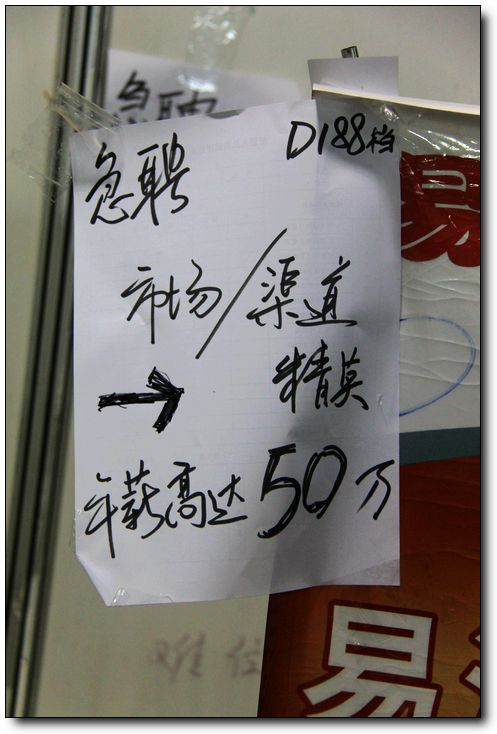 急聘
D188档
急聘
市场/渠道
→ 精英
年薪高达50万
易
易